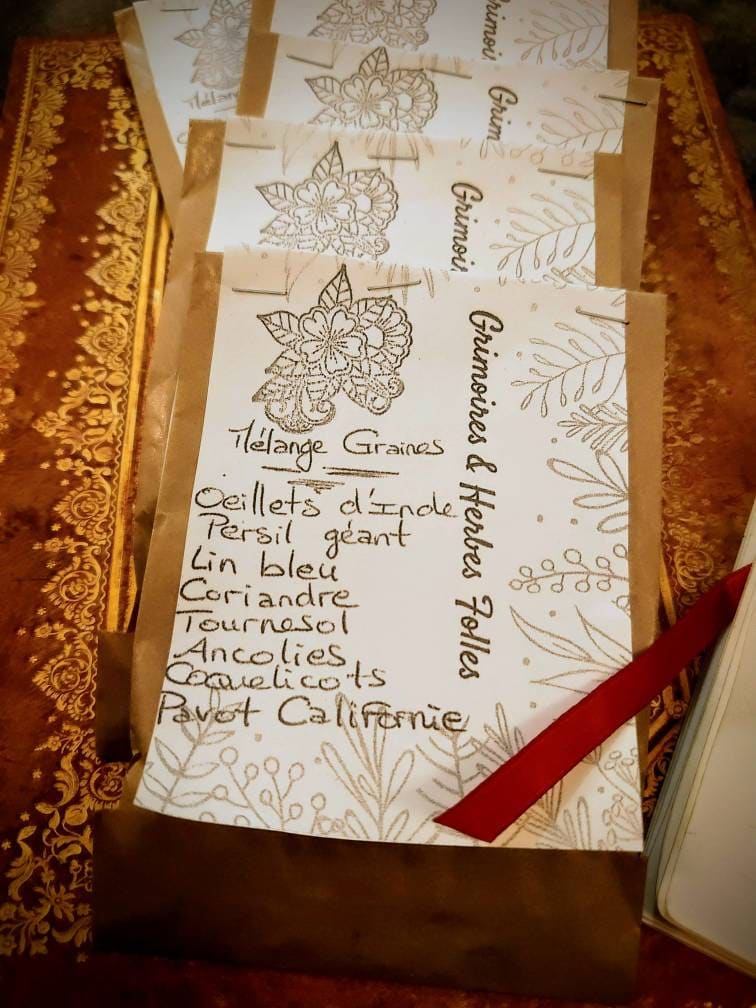 Mélan
Grimoi
Grim
Grimoi
Grimoires & Herbes Folles
Mélange Graines
Oeillets d'Inde
Persil géant
Lin bleu
Coriandre
Tournesol
Ancolies
Coquelicots
Pavot Californie